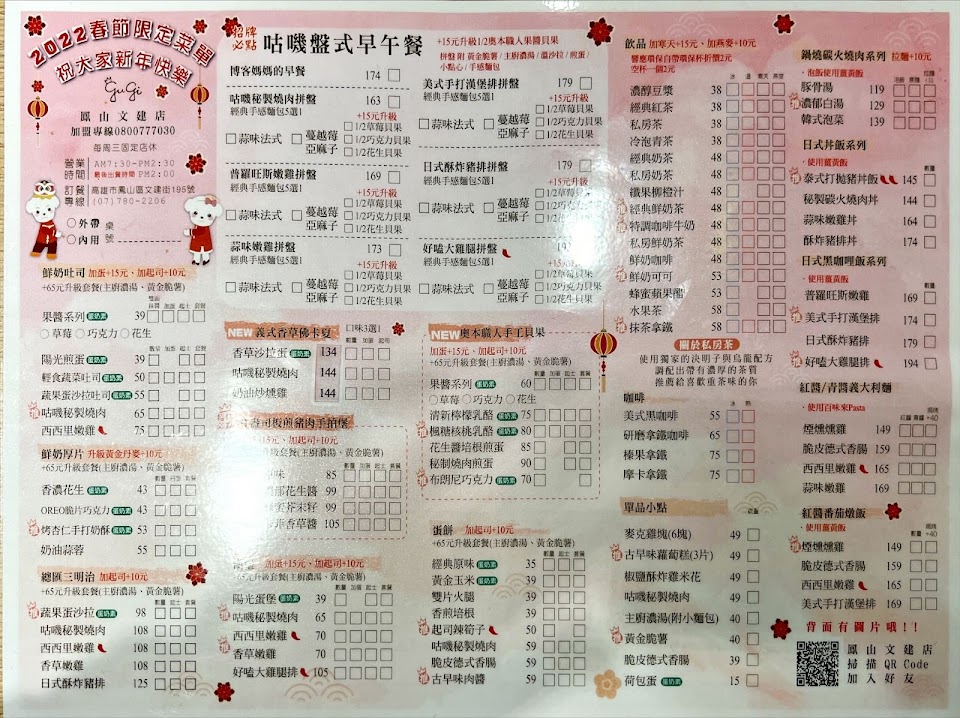 2022春節限定菜單
祝大家新年快樂
GuGi
鳳山文建店
加盟專線0800777030
每周三固定店休
營業時間 AM7:30-PM2:30
最後出餐時間 PM2:00
訂餐專線 高雄市鳳山區文建街195號
(07)780-2206
○外帶 桌號
○內用
招牌必點 咕嘰盤式早午餐
+15元升級1/2奧本職人果醬貝果
拼盤 附 黃金脆薯/主廚濃湯/溫沙拉/煎蛋/
小點心/手感麵包
博客媽媽的早餐 174 □
咕嘰秘製燒肉拼盤 163 □
經典手感麵包5選1 +15元升級
□蒜味法式 □蔓越莓亞麻子 □1/2草莓貝果
□1/2巧克力貝果
□1/2花生貝果
普羅旺斯嫩雞拼盤 169 □
經典手感麵包5選1 +15元升級
□蒜味法式 □蔓越莓亞麻子 □1/2草莓貝果
□1/2巧克力貝果
□1/2花生貝果
蒜味嫩雞拼盤 173 □
經典手感麵包5選1 +15元升級
□蒜味法式 □蔓越莓亞麻子 □1/2草莓貝果
□1/2巧克力貝果
□1/2花生貝果
美式手打漢堡排拼盤 179 □
經典手感麵包5選1 +15元升級
□蒜味法式 □蔓越莓亞麻子 □1/2草莓貝果
□1/2巧克力貝果
□1/2花生貝果
日式酥炸豬排拼盤 179 □
經典手感麵包5選1 +15元升級
□蒜味法式 □蔓越莓亞麻子 □1/2草莓貝果
□1/2巧克力貝果
□1/2花生貝果
好嗑大雞腿拼盤
經典手感麵包5選1
□蒜味法式 □蔓越莓亞麻子 □1/2草莓貝果
□1/2巧克力貝果
□1/2花生貝果
鮮奶吐司 加蛋+15元、加起司+10元
+65元升級套餐(主廚濃湯、黃金脆薯)
果醬系列 蛋奶素 39
○草莓 ○巧克力 ○花生
陽光煎蛋 蛋奶素 39
輕食蔬菜吐司 蛋奶素 50
蔬果蛋沙拉吐司 蛋奶素 55
咕嘰秘製燒肉 65
西西里嫩雞 75
鮮奶厚片 升級黃金丹麥+10元
+65元升級套餐(主廚濃湯、黃金脆薯)
香濃花生 蛋奶素 43
OREO脆片巧克力 蛋奶素 43
烤杏仁手打奶酥 蛋奶素 53
奶油蒜蓉 55
總匯三明治 加起司+10元
+65元升級套餐(主廚濃湯、黃金脆薯)
蔬果蛋沙拉 蛋奶素 98
咕嘰秘製燒肉 108
西西里嫩雞 108
香草嫩雞 108
日式酥炸豬排 125
NEW 義式香草佛卡夏 口味3選1
香草沙拉蛋 蛋奶素 134
咕嘰秘製燒肉 144
奶油炒燻雞 144
+65元升級套餐(主廚濃湯、黃金脆薯)
85
99
99
105
加蛋+15元、加起司+10元
+65元升級套餐(主廚濃湯、黃金脆薯)
陽光蛋堡 蛋奶素 39
咕嘰秘製燒肉 65
西西里嫩雞 70
香草嫩雞 70
好嗑大雞腿排 105
NEW 奧本職人手工貝果
加蛋+15元、加起司+10元
+65元升級套餐(主廚濃湯、黃金脆薯)
果醬系列 蛋奶素 60
○草莓 ○巧克力 ○花生
清新檸檬乳酪 蛋奶素 75
楓糖核桃乳酪 蛋奶素 80
花生醬培根煎蛋 85
秘制燒肉煎蛋 90
布朗尼巧克力 蛋奶素 70
蛋餅 加起司+10元
+65元升級套餐(主廚濃湯、黃金脆薯)
經典原味 蛋奶素 35
黃金玉米 蛋奶素 39
雙片火腿 39
香煎培根 39
起司辣筍子 50
咕嘰秘製燒肉 59
脆皮德式香腸 59
古早味肉醬 59
飲品 加寒天+15元、加燕麥+10元
響應環保自帶環保杯折價2元
空杯一個2元
濃醇豆漿 38
經典紅茶 38
私房茶 38
冷泡青茶 38
經典奶茶 48
私房奶茶 48
纖果柳橙汁 48
經典鮮奶茶 48
特調咖啡牛奶 48
私房鮮奶茶 48
鮮奶咖啡 48
鮮奶可可 53
蜂蜜蘋果醋 53
水果茶 58
抹茶拿鐵 58
關於私房茶
使用獨家的決明子與烏龍配方
調配出帶有濃厚的茶質
推薦給喜歡重茶味的你
咖啡
美式黑咖啡 55
研磨拿鐵咖啡 65
榛果拿鐵 75
摩卡拿鐵 75
單品小點
麥克雞塊(6塊) 49
古早味蘿蔔糕(3片) 49
椒鹽酥炸雞米花 49
咕嘰秘製燒肉 49
主廚濃湯(附小麵包) 40
黃金脆薯 40
脆皮德式香腸 39
荷包蛋 蛋奶素 15
鍋燒碳火燒肉系列 拉麵+10元
·泡飯使用薑黃飯
豚骨湯 119
濃郁白湯 129
韓式泡菜 139
日式丼飯系列
·使用薑黃飯
泰式打拋豬丼飯 145
秘製碳火燒肉丼 144
蒜味嫩雞丼 164
酥炸豬排丼 174
日式黑咖哩飯系列
·使用薑黃飯
普羅旺斯嫩雞 169
美式手打漢堡排 174
日式酥炸豬排 179
好嗑大雞腿排 194
紅醬/青醬義大利麵
·使用百味來Pasta
煙燻燻雞 149
脆皮德式香腸 149
西西里嫩雞 165
蒜味嫩雞 169
紅醬番茄燉飯
·使用薑黃飯
煙燻燻雞 149
脆皮德式香腸 159
西西里嫩雞 165
美式手打漢堡排 169
背面有圖片哦!!
鳳山文建店
掃描QR Code
加入好友